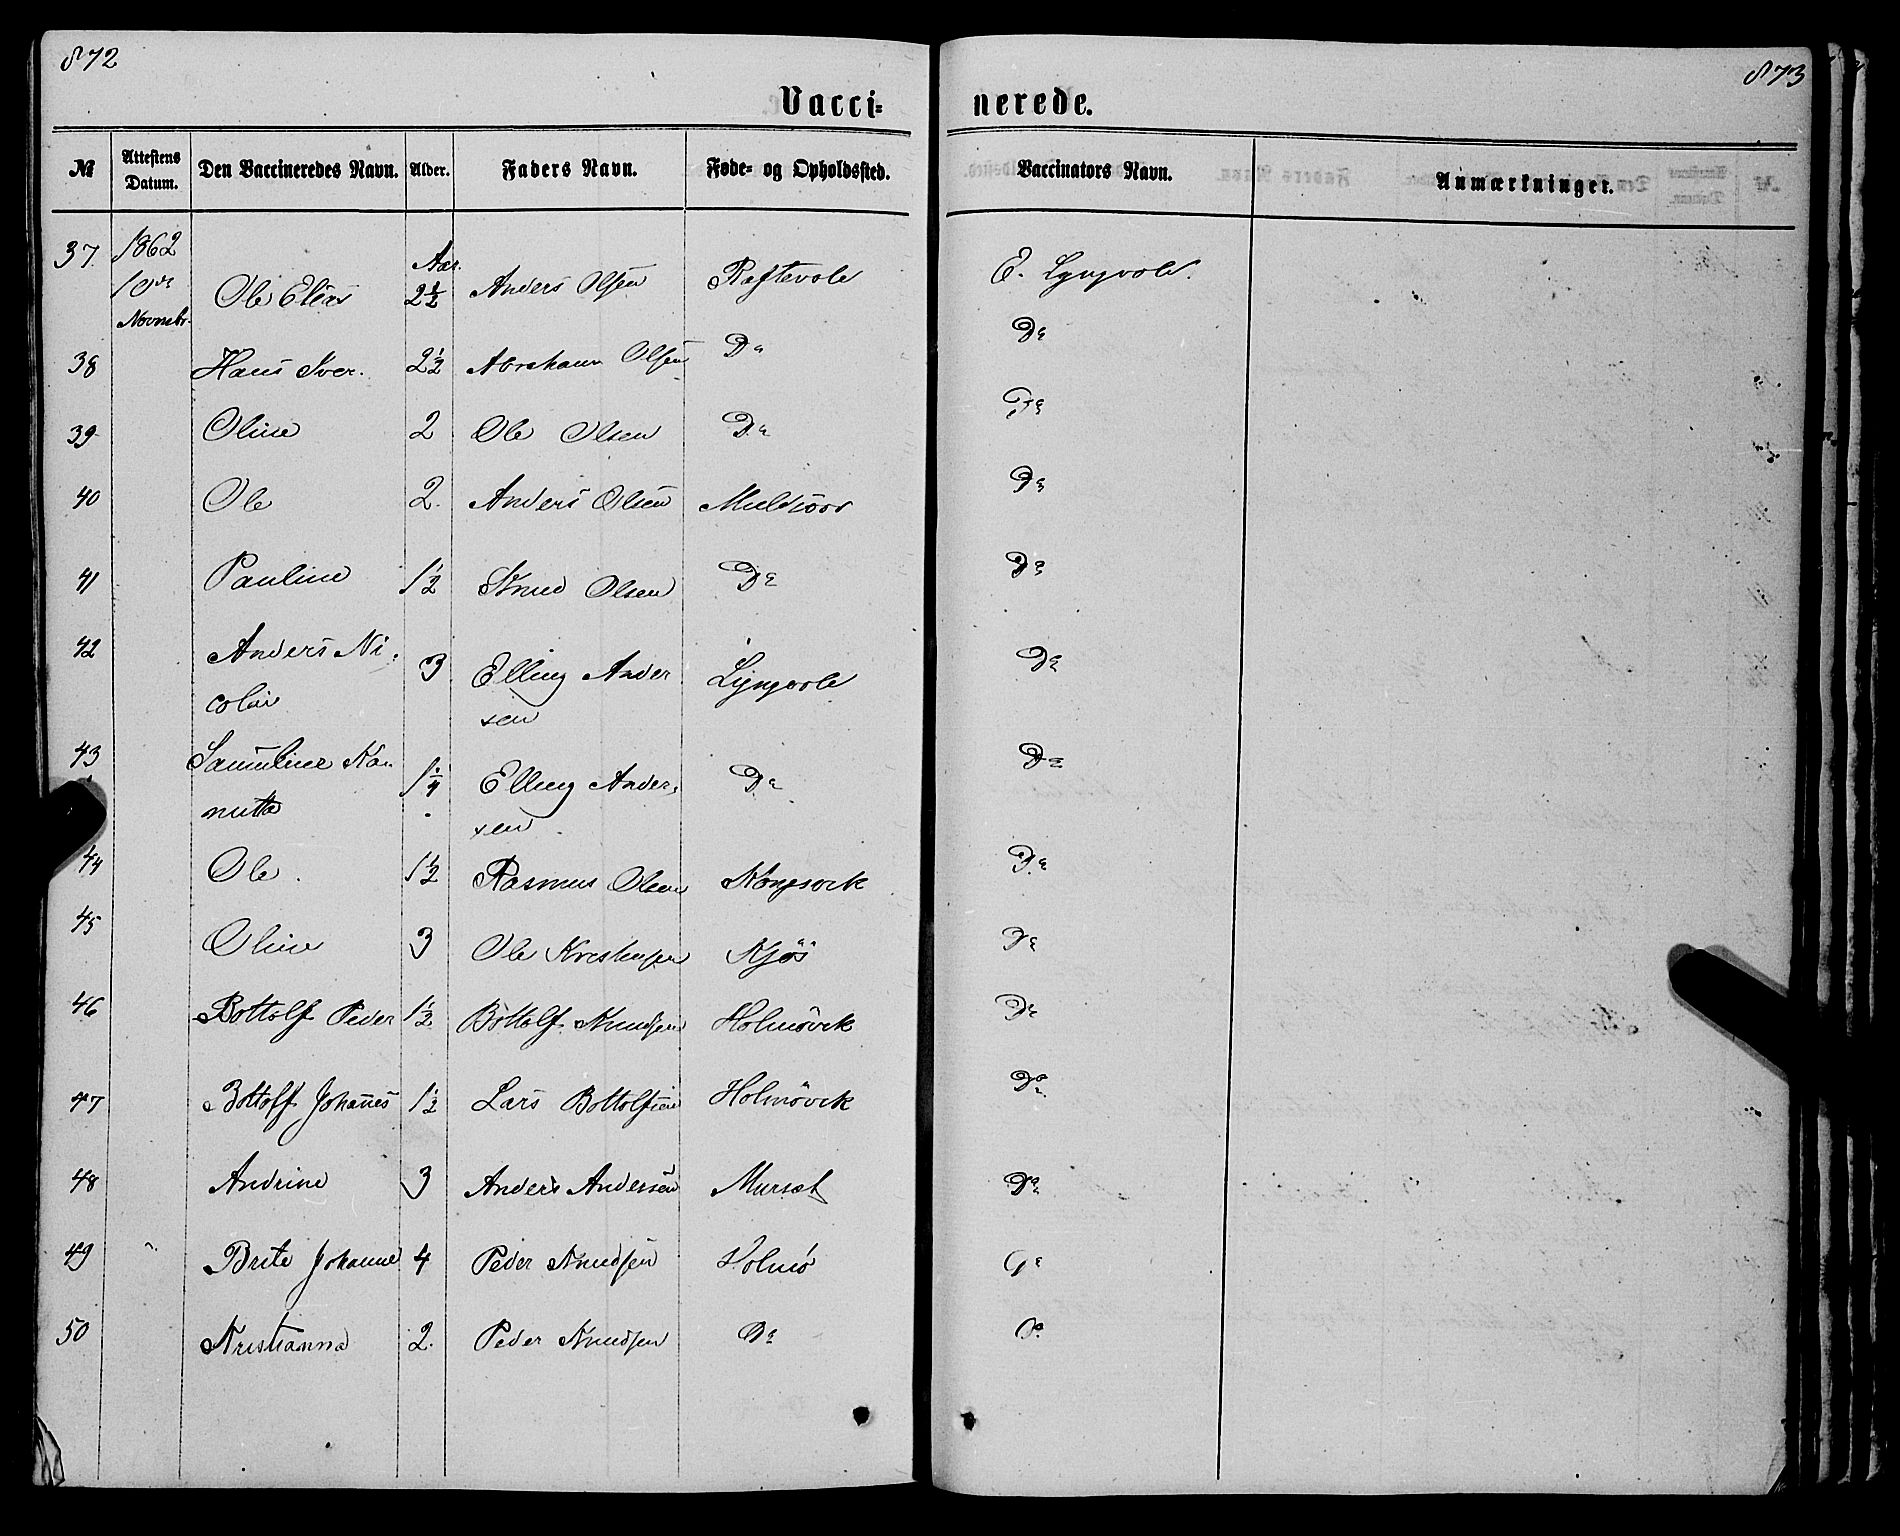 872
873
Vacci= nerede.
№ Attestens Datum. Den Vaccineredes Navn. Alder. Faders Navn. Føde- og Opholdssted. Vaccinators Navn. Anmærkninger.
37. 1862 10de Novmbr. Ole Elias Aar. 2½ Anders Olsen Raftevold E. Lyngvold.
38 Hans Iver. 2½ Abraham Olsen Do Do
39 Oline 2 Ole Olsen Do Do
40 Ole 2. Anders Olsen Muldsoor Do
41 Pauline 1½ Knud Olsen Do Do
42 Anders Ni- 3 Elling Ander Lyngvold Do
colai sen
43 Samuline Ka- 1¼ Elling Ander- Do Do
nutta sen
44 Ole 1½ Rasmus Olsen Kongsvik Do
45 Oline 3 Ole Kristensen Kjøs Do
46 Bottolf Peder 1½ Bottolf Knudsen Holmövik Do
47 Bottolf Johanes 1½ Lars Bottolfsen Holmövik Do
48 Andrine 3 Anders Andersen Mursæt Do
49 " Brite Johanne 4 Peder Knudsen Holmö Do
50 Kristianna 2. Peder Knudsen Do Do